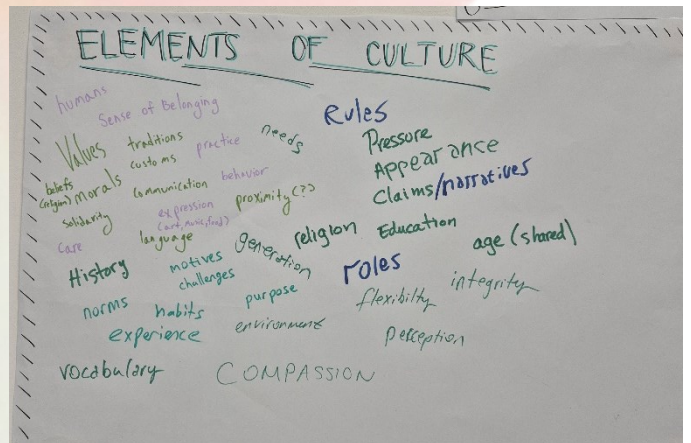 ELEMENTS OF CULTURE
humans
Sense of Belonging
Rules
Values
traditions
customs
practice
needs
Pressure
Appearance
beliefs
(religion)
morals
communication
behavior
Claims/narratives
solidarity
expression
(art, music, food)
proximity(??)
care
language
generation
religion
Education
age (shared)
History
motives
challenges
roles
integrity
norms
habits
purpose
flexibilty
experience
environment
perception
vocabulary
COMPASSION